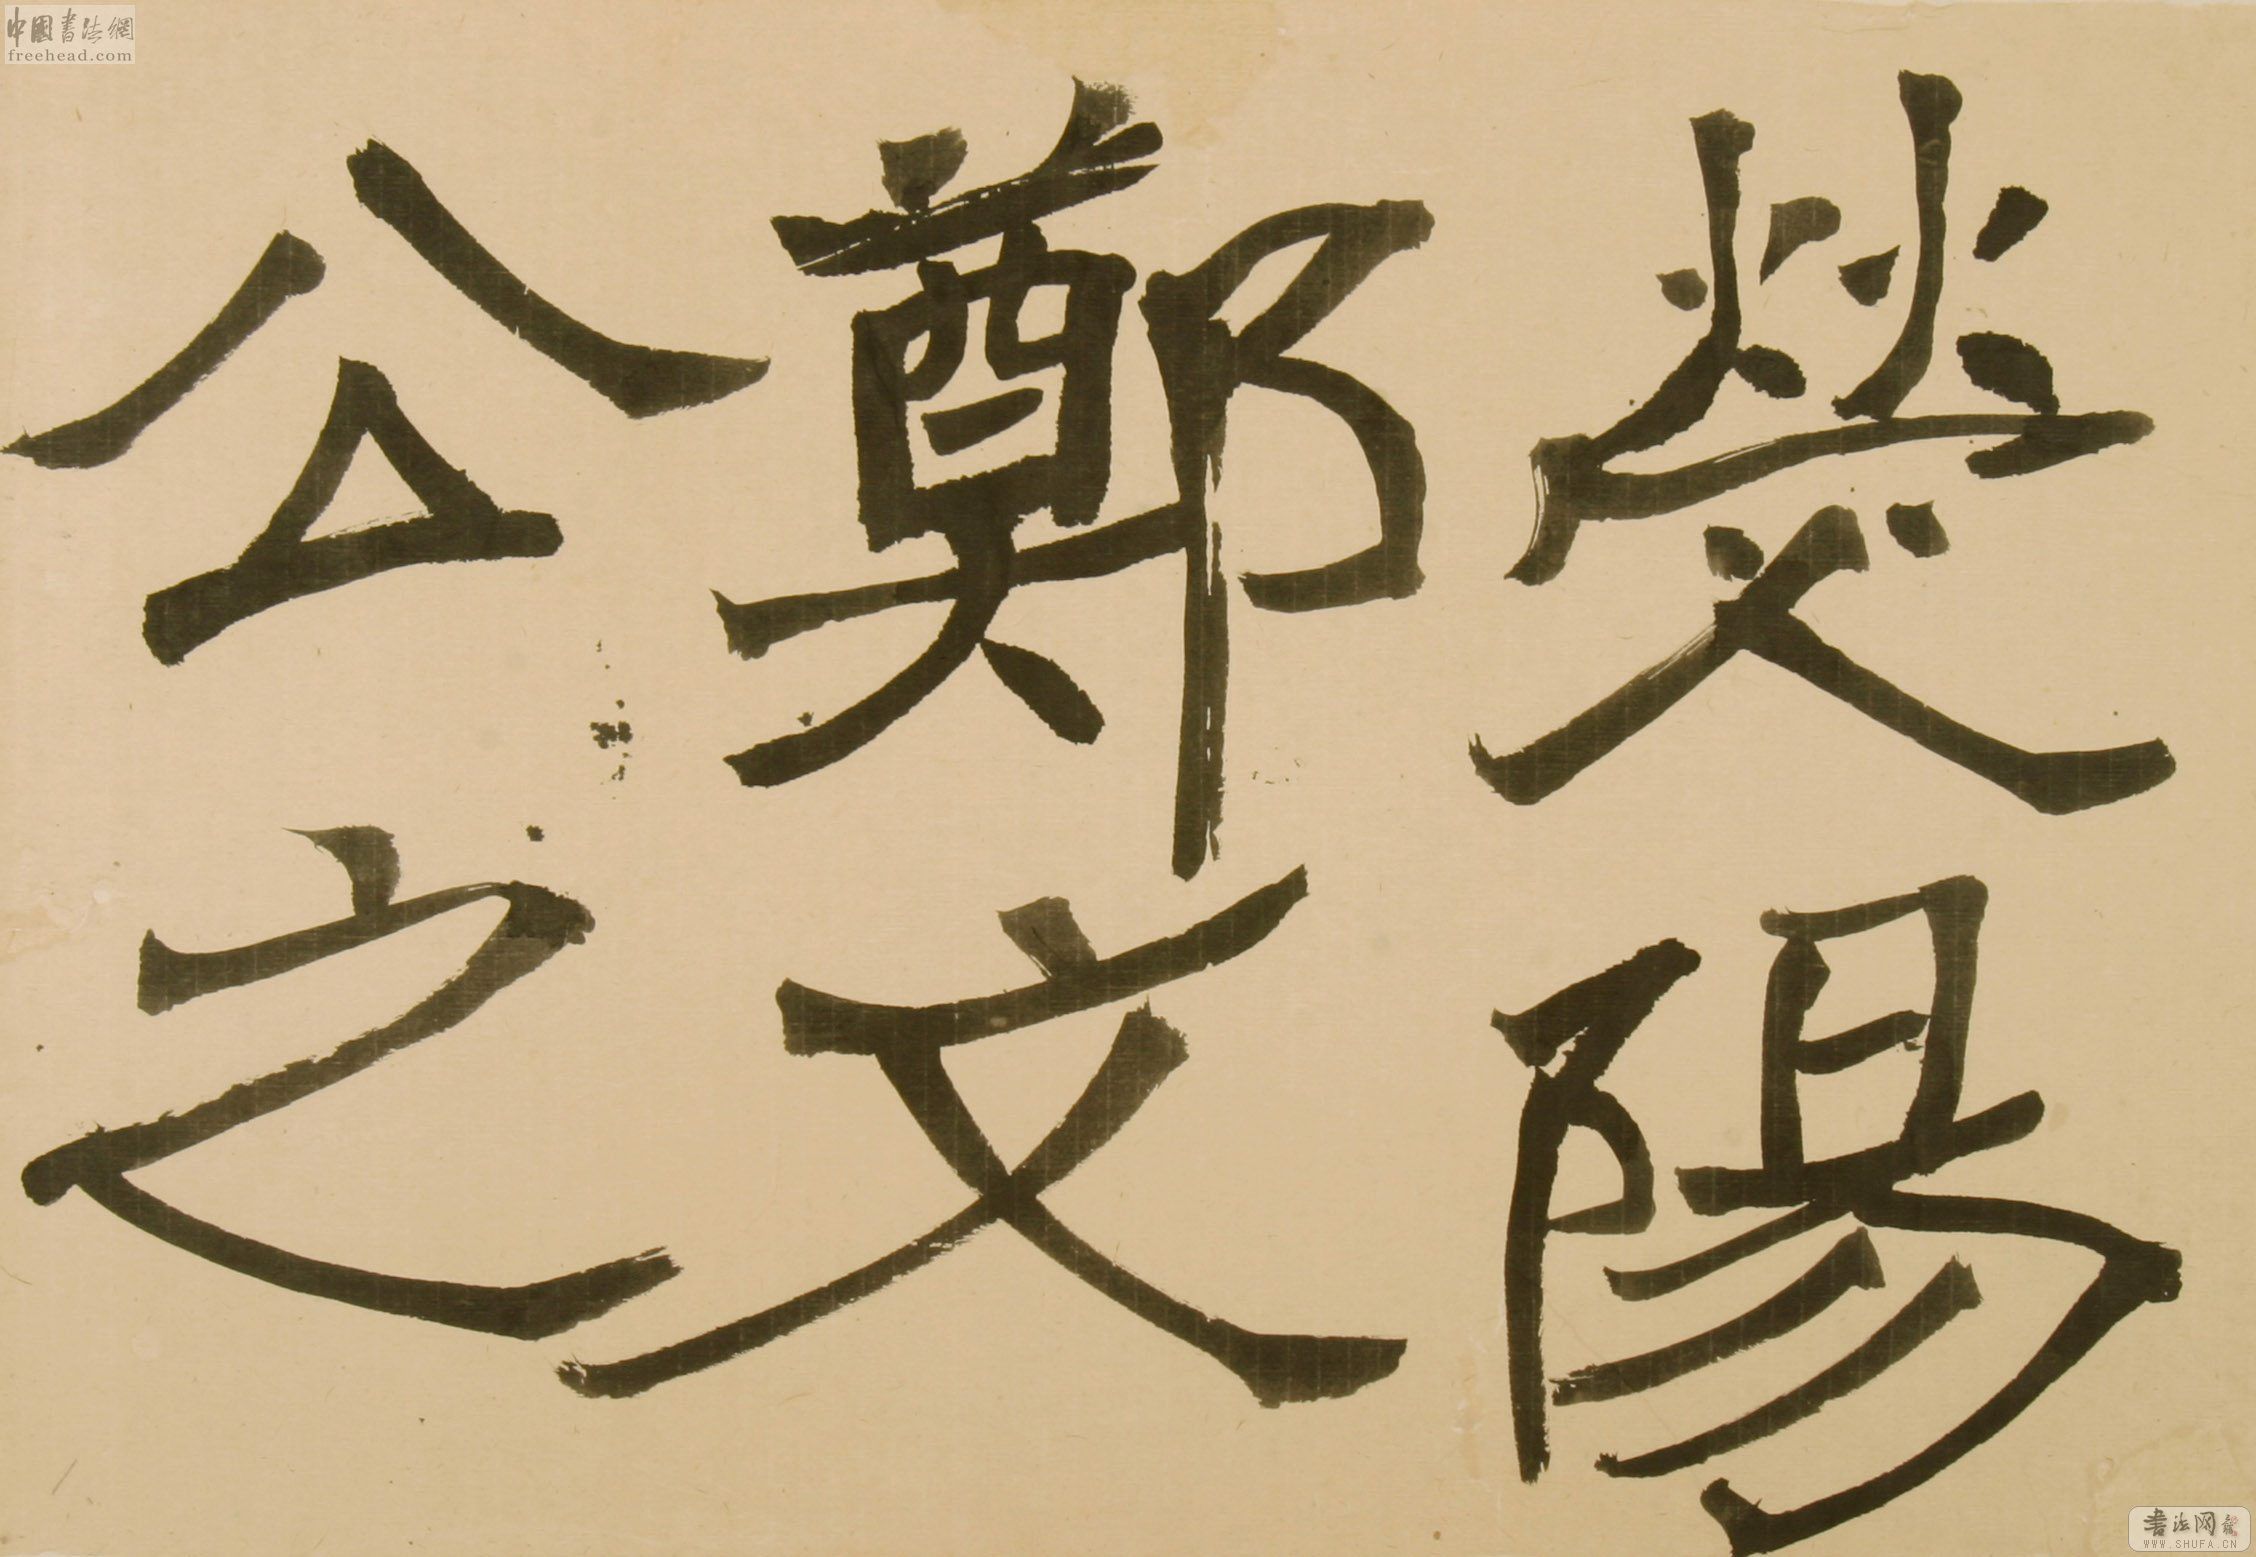 熒陽
鄭文
公之
中國書法網
freehead.com
书法网
WWW.SHUFA.CN